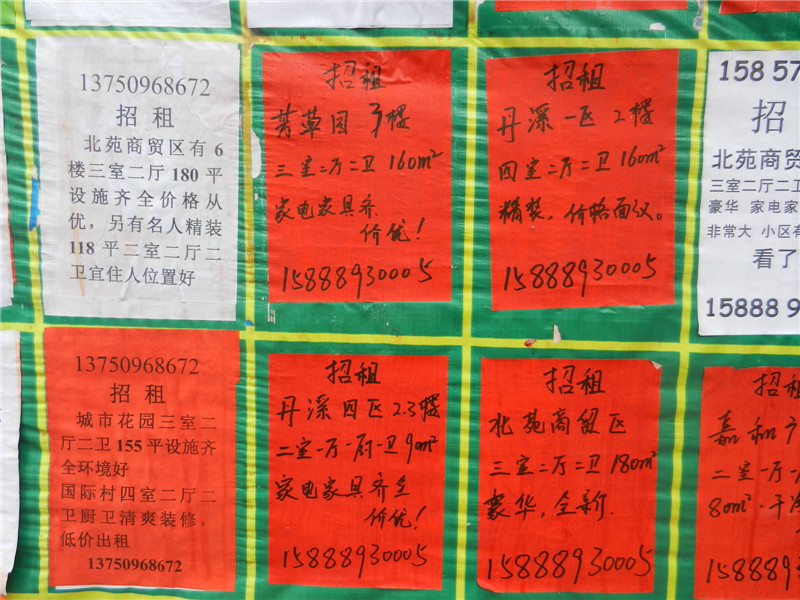 13750968672
招租
北苑商贸区有6
楼三室二厅180平
设施齐全价格从
优，另有名人精装
118平二室二厅二
卫宜住人位置好
招租
三室二厅二卫160m²
家电家具齐
价优！
15888930005
招租
丹溪一区2楼
四室二厅二卫160m²
精装，价格面议。
15888930005
158 57
招
北苑商贸
三室二厅二卫
豪华 家电家
非常大 小区有
看了
15888 9
13750968672
招租
城市花园三室二
厅二卫155平设施齐
全环境好
国际村四室二厅二
卫厨卫清爽装修，
低价出租
13750968672
招租
丹溪四区2.3楼
二室一厅一厨一卫9m²
家电家具齐全
价优！
15888930005
招租
北苑商贸区
三室二厅二卫180m²
豪华，全新.
15888930005
招租
嘉和
二室一厅
80m²·干净
158889